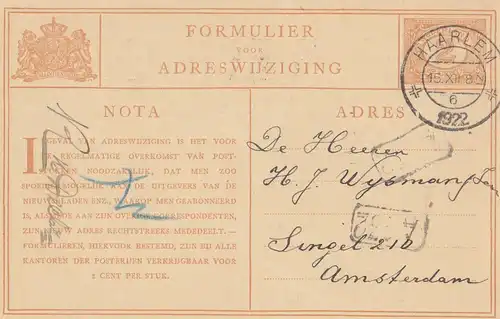 FORMULIER
VOOR
ADRESWIJZIGING
HAARLEM
15.XII.8 N
6
1922
NOTA
IN GEVAL VAN ADRESWIJZIGING IS HET VOOR
REGELMATIGE OVERKOMST VAN POST-
NOODZAKELIJK, DAT MEN ZOO
SPOEDIG MOGELIJK AAN DE UITGEVERS VAN DE
NIEUWSBLADEN ENZ., WAAROP MEN GEABONNEERD
IS, ALSMEDE AAN ZIJN CORRESPONDENTEN,
ZIJN NIEUW ADRES RECHTSTREEKS MEDEDEELT.—
FORMULIEREN, HIERVOOR BESTEMD, ZIJN BIJ ALLE
KANTOREN DER POSTERIJEN VERKRIJGBAAR VOOR
2 CENT PER STUK.
ADRES
De Heeren
H. J. Wysman & Zn
Singel 210
Amsterdam